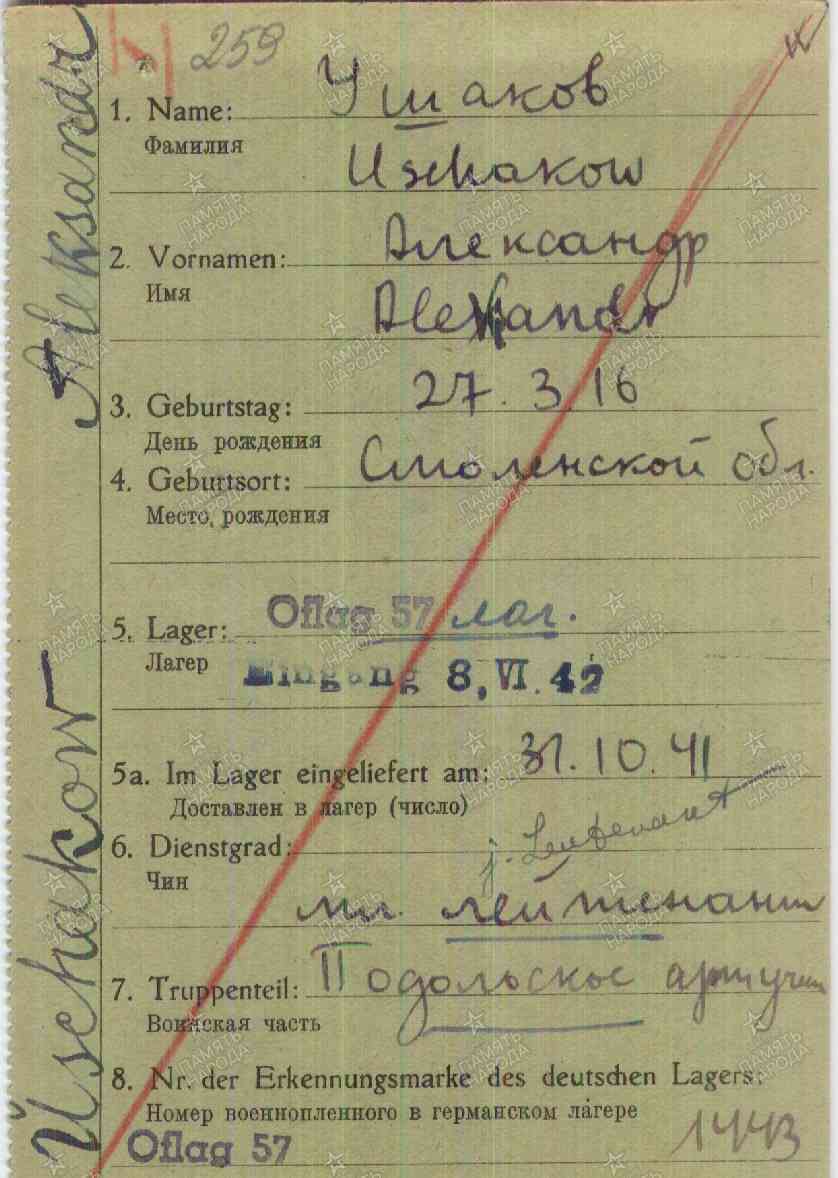 259
1. Name: Ушаков
Фамилия
Uschakow
2. Vornamen: Александр
Имя
Alexandr
3. Geburtstag: 27.3.16
День рождения
4. Geburtsort: Смоленской обл.
Место рождения
5. Lager: Oflag 57 лаг.
Лагер
Eingang 8. VI. 42
5a. Im Lager eingeliefert am: 31.10.41
Доставлен в лагер (число)
6. Dienstgrad: j. Leutenant
Чин
мл. лейтенант
7. Truppenteil: Подольское арт учил
Воинская часть
8. Nr. der Erkennungsmarke des deutschen Lagers:
Номер военнопленного в германском лагере
Oflag 57 1443
Uschakow Aleksandr
ПАМЯТЬ НАРОДА